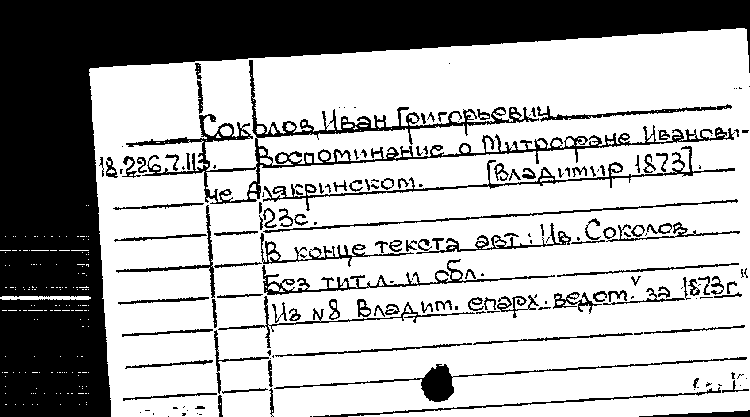 Соколов, Иван Григорьевич.
18.226.7.113. Воспоминание о Митрофане Иванови-
че Алякринском. [Владимир, 1873].
23с.
В конце текста авт.: Ив. Соколов.
Без тит.л. и обл.
Из №8 Владим. епарх. ведом." за 1873г."